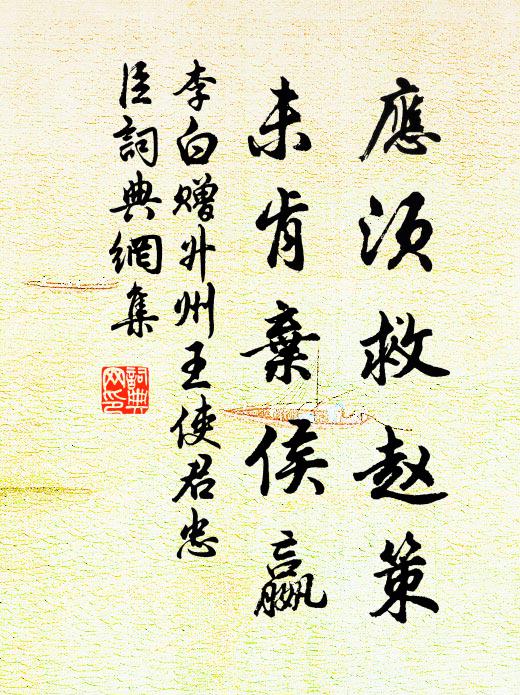 應須救赵策
未肯棄侯嬴
李白赠升州王使君忠
臣詞典網集
詞典網印